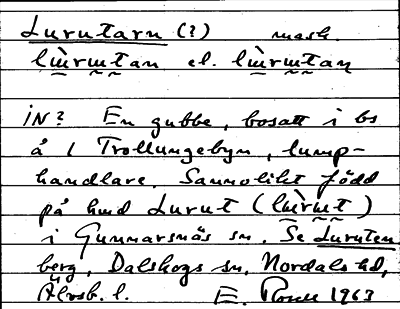 Lurutarn (?) mask.
lùrutan el. lùrutaṇ
IN? En gubbe, bosatt i bs
å 1 Trollungebyn, lump-
handlare. Sannolikt född
på hmd Lurut (lùrut)
i Gunnarsnäs sn. Se Luruten
berg, Dalskogs sn, Nordals hd,
Älvsb. l. E. 1963